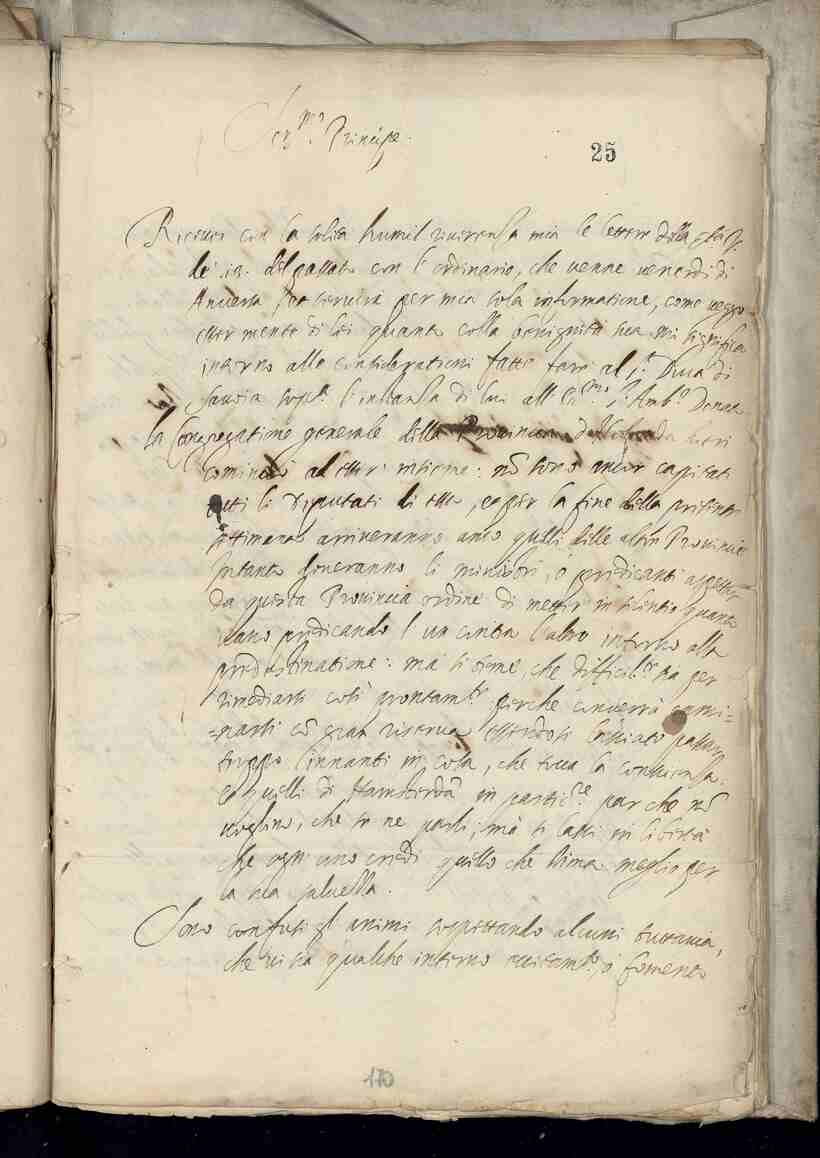 Ser.mo Principe.
25
Ricevei con la solita humil riverenza mia le lettere della Ser.tà V.
de' 12. del passato con l'ordinario, che venne venerdì di
Anversa mi servirà per mia sola informatione, come veggo
esser mente di lei quanto colla benignità sua mi significa
intorno alle considerationi fatte fare al s.r Duca di
Savoia sop.a l'instanza di lui all' Ill.mo s.r Amb.r Donato
la Congregatione generale della Provincia d'Hollanda hieri
cominciò ad esser insieme: nõ sono ancor capitati
tutti li deputati di essa, e per la fine della presente
settimana arriveranno anco quelli delle altre Provincie
Intanto doveranno li ministri, ò predicanti aspettar
da questa Provincia ordine di metter in silentio quanto
vano predicando l'un contra l'altro intorno alla
predestinatione: ma si teme, che difficil.te sia per
rimediarsi così prontam.te perche converrà cami=
=narsi cõ gran riserva essendosi lasciato passar
troppo innanti in cosa, che tocca la conscienza.
Et quelli di Hamsterdã in partic.re par che nõ
voglino, che se ne parli; mà si lassi in libertà
che ogn'uno credi quello che stima meglio per
la sua salvezza.
Sono confusi gl'animi sospettando alcuni tuttavia,
che vi sia qualche interno ò fomento
170